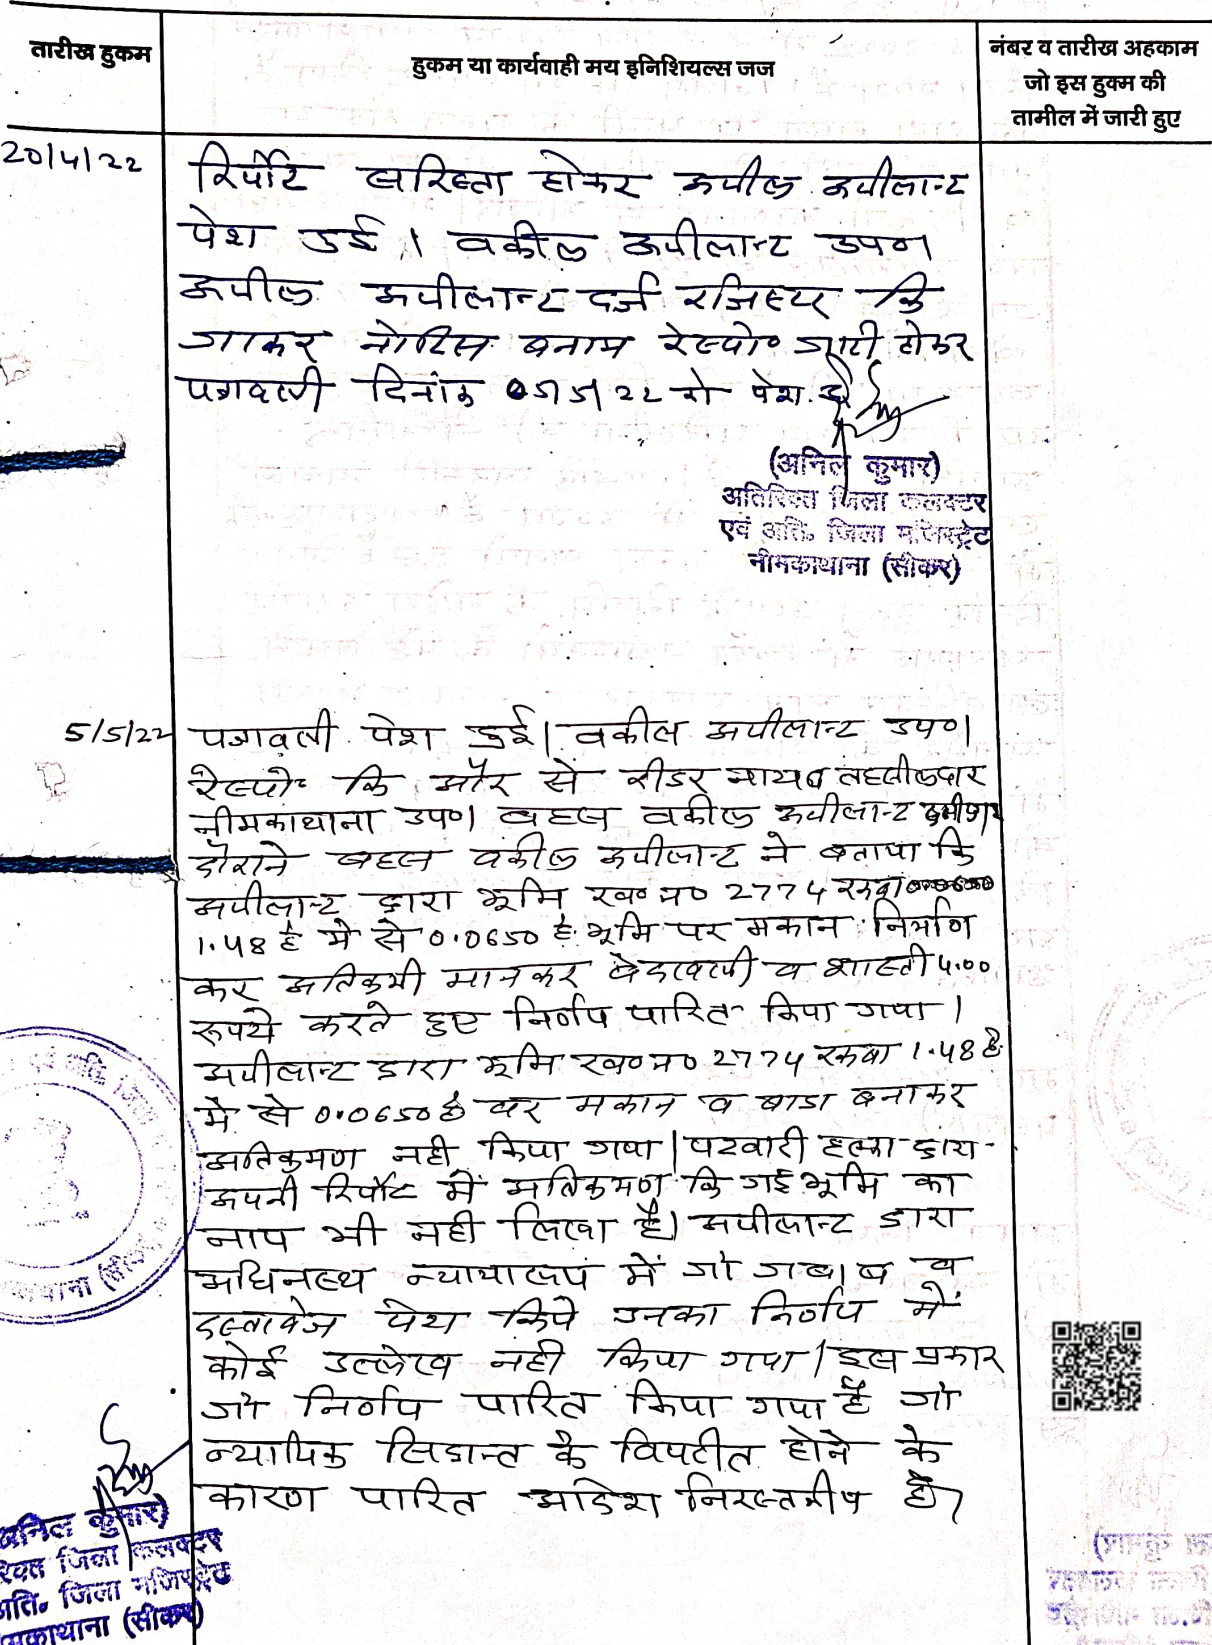 तारीख हुकम
हुकम या कार्यवाही मय इनिशियल्स जज
नंबर व तारीख अहकाम
जो इस हुक्म की
तामील में जारी हुए
20/4/22
रिर्पोट सरिस्ता होकर अपील अपीलान्ट
पेश हुई । वकील अपीलान्ट उप०।
अपील अपीलान्ट दर्ज रजिस्टर कि
जाकर नोटिस बनाम रेस्पो० जारी होकर
पत्रावली दिनांक 05/5/22 को पेश हो
(अनिल कुमार)
अतिरिक्त जिला कलक्टर
एवं अति॰ जिला मजिस्ट्रेट
नीमकाथाना (सीकर)
5/5/22
पत्रावली पेश हुई। वकील अपीलान्ट उप०।
रेस्पो० कि और से रीडर नायब तहसीलदार
नीमकाथाना उप०। बहस वकील अपीलान्ट
दौराने बहस वकील अपीलान्ट ने बताया कि
अपीलान्ट द्वारा भूमि ख०न० 2774 रकबा
1.48 है मे से 0.0650 है भूमि पर मकान निर्माण
कर अतिक्रमी मानकर बेदखली व शास्ती 4.00
रूपये करते हुए निर्णय पारित किया गया ।
अपीलान्ट द्वारा भूमि ख०न० 2774 रकबा 1.48 है
मे से 0.0650 है पर मकान व बाडा बनाकर
अतिक्रमण नही किया गया | पटवारी हल्का द्वारा
अपनी रिर्पोट में अतिक्रमण कि गई भूमि का
नाप भी नही लिखा है। अपीलान्ट द्वारा
अधिनस्थ न्यायालय में जो जबाब व
दस्तावेज पेश किये उनका निर्णय में
कोई उल्लेख नही किया गया | इस प्रकार
जो निर्णय पारित किया गया है जो
न्यायिक सिद्धान्त के विपरीत होने के
कारण पारित आदेश निरस्तनीय है।
कुमार)
जिला कलक्टर
अति॰ जिला मजिस्ट्रेट
(सीकर)